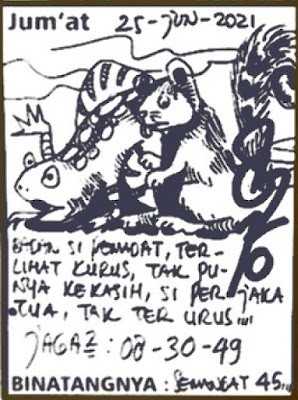 Jum'at 25-JUN-2021
BADAN SI PEMADAT, TER-
LIHAT KURUS, TAK PU-
NYA KEKASIH, SI PERJAKA
TUA, TAK TER URUS....
JAGA2 : 08-30-49
BINATANGNYA : SEMANGAT 45...